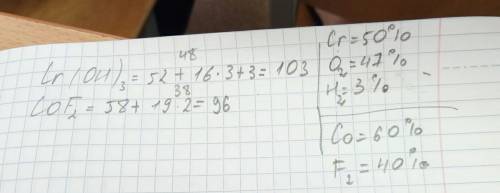 48
Cr(OH)₃ = 52 + 16·3+3 = 103
38
COF₂ = 58 + 19·2 = 96
Cr = 50%
O₂ = 47%
H₂ = 3%
Co = 60%
F₂ = 40%